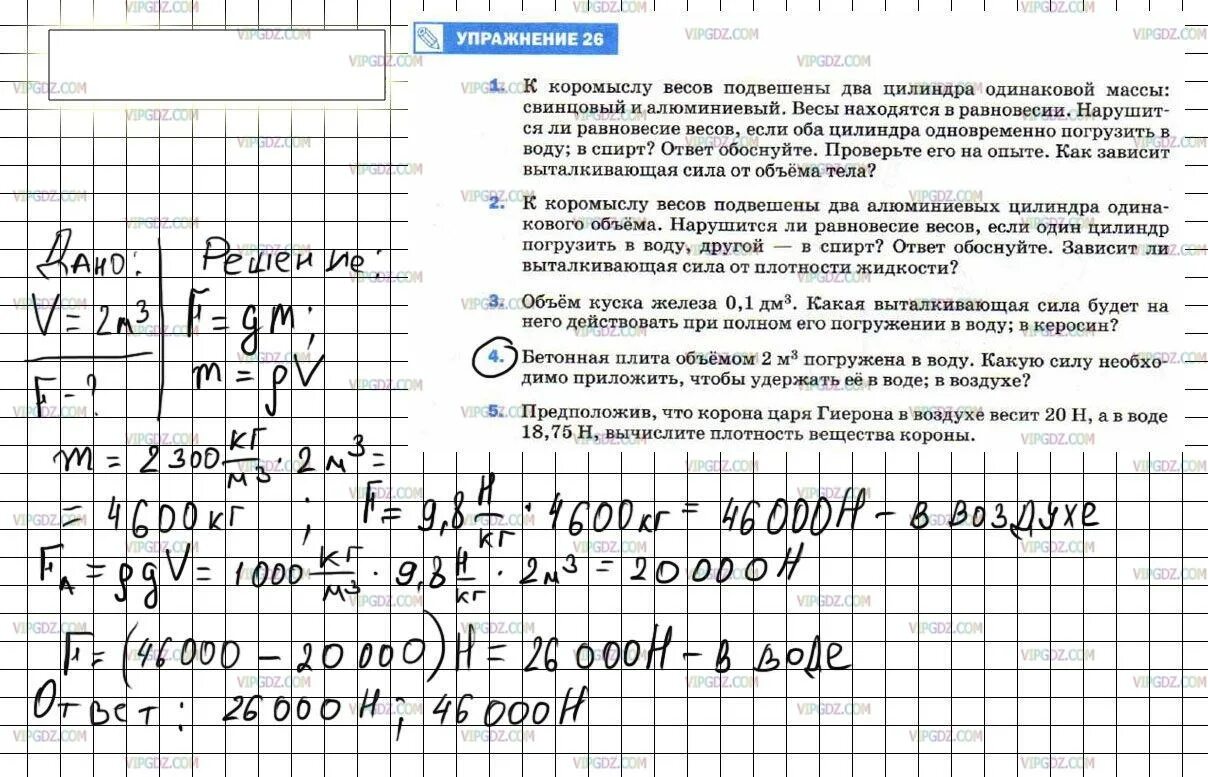 УПРАЖНЕНИЕ 26
1. К коромыслу весов подвешены два цилиндра одинаковой массы:
свинцовый и алюминиевый. Весы находятся в равновесии. Нарушит-
ся ли равновесие весов, если оба цилиндра одновременно погрузить в
воду; в спирт? Ответ обоснуйте. Проверьте его на опыте. Как зависит
выталкивающая сила от объёма тела?
2. К коромыслу весов подвешены два алюминиевых цилиндра одина-
кового объёма. Нарушится ли равновесие весов, если один цилиндр
погрузить в воду, другой — в спирт? Ответ обоснуйте. Зависит ли
выталкивающая сила от плотности жидкости?
3. Объём куска железа 0,1 дм³. Какая выталкивающая сила будет на
него действовать при полном его погружении в воду; в керосин?
4. Бетонная плита объёмом 2 м³ погружена в воду. Какую силу необхо-
димо приложить, чтобы удержать её в воде; в воздухе?
5. Предположив, что корона царя Гиерона в воздухе весит 20 Н, а в воде
18,75 Н, вычислите плотность вещества короны.
Дано: Решение:
V = 2м³ F = gm;
F - ? m = ρV
m = 2300 кг/м³ · 2 м³ =
= 4600 кг ; F = 9,8 Н/кг · 4600 кг = 46000 Н - в воздухе
F_А = ρgV = 1000 кг/м³ · 9,8 Н/кг · 2 м³ = 20000 Н
F = (46000 - 20000) Н = 26000 Н - в воде
Ответ: 26000 Н; 46000 Н
VIPGDZ.COM